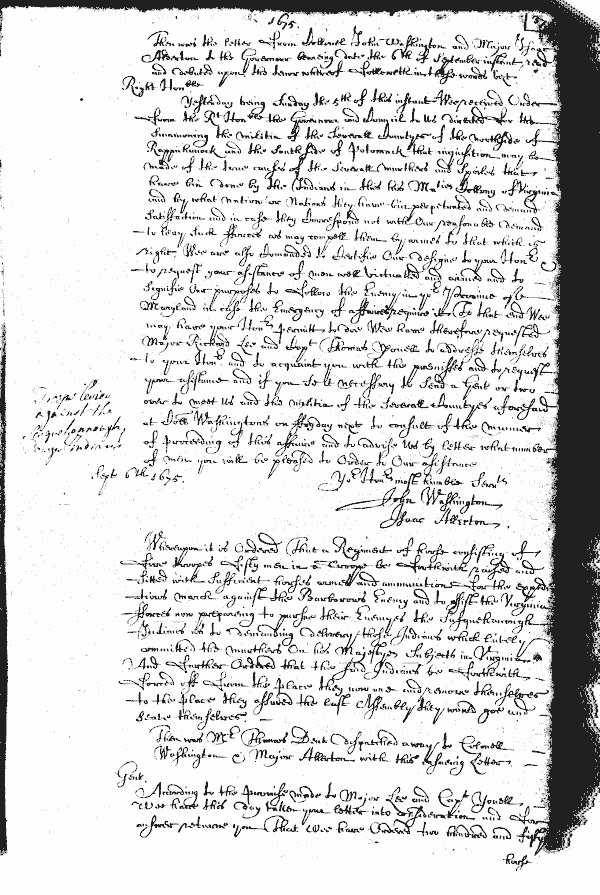 1675.
Then was the letter from Collonel John Washington and Major Isaac
Allerton to the Governour bearing date the 6th of September instant read
and debated upon the tenor whereof followeth in these words vizt
Right Honble
Yesterday being Sunday the 5th of this instant Wee received Order
from the Rt Honble the Governor and Councill to us directed for the
Summoning the militia of the Severall Countyes of the northside of
Rappahanock and the Southside of Potomack that inquisition may be
made of the true causes of the Severall murthers and Spoiles that
have bin done by the Indians in this his Maties Collony of Virginia
and by what nation or Nations they have bin perpetrated and demand
Satisfaction and in case they Correspond not with Our reasonable demand
to Leavy such fforces as may compell them by armes to that which is
right Wee are also Comanded to Certifie Our designe to your Honr
to request your asistance of men well victualled and armed and to
Signifie Our purposes to follow the Enemy in ye Teritories of
Maryland in case the Emergency of affaires require it To that end Wee
may have your Honrs permitt to doe Wee have therefore requested
Major Richard Lee and Capt Thomas Youell to addresse themselves
to your Honr and to acquaint you with the premisses and to request
your asistance and if you see it necessary to Send a Gent or two
over to meet us and the militia of the Severall Countyes aforesaid
at Coll Washingtons on ffryday next to consult of the manner
of proceeding of this affaire and to advise us by letter what number
of men you will be pleased to Order to Our asistance
Sept 6th 1675.
Yor Honrs most humble Servts
John Washington
Isaac Allerton.
against the
Indians
Whereupon it is Ordered That a Regiment of horse consisting of
five troopes fifty men in a troope be forthwith raised and
fitted with Sufficient horses armes and ammunition for the expedi
tious march against the Barbarous Enemy and to assist the Virginia
fforces now preparing to pursue their Enemyes the Susquehannough
Indians as to demanding delivery those Indians which lately
committed the murthers On his Majestyes Subjects in Virginia
And further Ordered that the said Indians be forthwith
forced off from the place they now are and remove themselves
to the place they assured the last Assembly they would goe and
Seate themselves
Then was Mr Thomas Dent dispatched away to Collonell
Washington & Major Allerton with this ensueing Letter
Gent
According to the promise made to Major Lee and Capt Youell
Wee have this day taken your letter into consideration and for
answer returne you That Wee have Ordered two hundred and fifty
horse